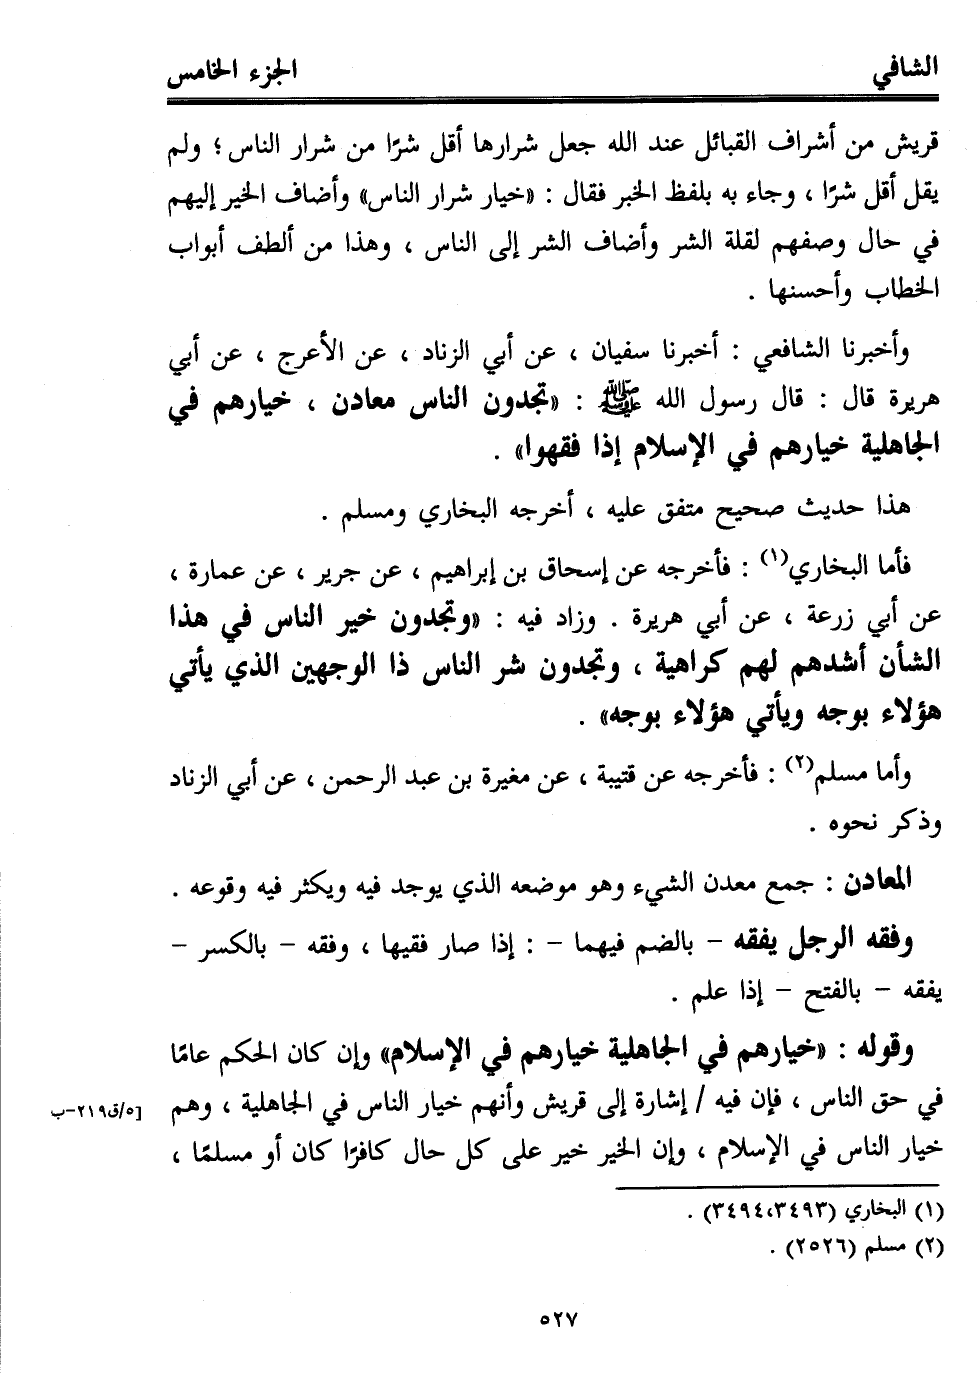 الشافي
الجزء الخامس
قريش من أشراف القبائل عند الله جعل شرارها أقل شرًا من شرار الناس ؛ ولم
يقل أقل شرًا ، وجاء به بلفظ الخبر فقال : «خيار شرار الناس» وأضاف الخير إليهم
في حال وصفهم لقلة الشر وأضاف الشر إلى الناس ، وهذا من ألطف أبواب
الخطاب وأحسنها .
وأخبرنا الشافعي : أخبرنا سفيان ، عن أبي الزناد ، عن الأعرج ، عن أبي
هريرة قال : قال رسول الله ﷺ : «تجدون الناس معادن ، خيارهم في
الجاهلية خيارهم في الإسلام إذا فقهوا» .
هذا حديث صحيح متفق عليه ، أخرجه البخاري ومسلم .
فأما البخاري(١) : فأخرجه عن إسحاق بن إبراهيم ، عن جرير ، عن عمارة ،
عن أبي زرعة ، عن أبي هريرة . وزاد فيه : «وتجدون خير الناس في هذا
الشأن أشدهم لهم كراهية ، وتجدون شر الناس ذا الوجهين الذي يأتي
هؤلاء بوجه ويأتي هؤلاء بوجه» .
وأما مسلم(٢) : فأخرجه عن قتيبة ، عن مغيرة بن عبد الرحمن ، عن أبي الزناد
وذكر نحوه .
المعادن : جمع معدن الشيء وهو موضعه الذي يوجد فيه ويكثر فيه وقوعه .
وفقه الرجل يفقه – بالضم فيهما – : إذا صار فقيها ، وفقه – بالكسر –
يفقه – بالفتح – إذا علم .
وقوله : «خيارهم في الجاهلية خيارهم في الإسلام» وإن كان الحكم عامًا
في حق الناس ، فإن فيه / إشارة إلى قريش وأنهم خيار الناس في الجاهلية ، وهم
[٥/ق٢١٩-ب
خيار الناس في الإسلام ، وإن الخير خير على كل حال كافرًا كان أو مسلمًا ،
(١) البخاري (٣٤٩٣،٣٤٩٤) .
(٢) مسلم (٢٥٢٦) .
٥٢٧